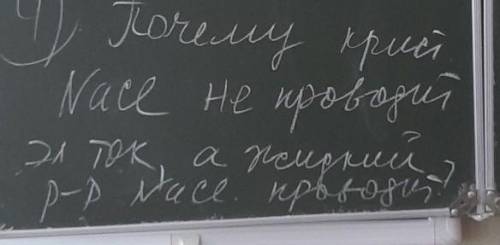 4) Почему крист
NaCl не проводит
эл ток, а жидкий
р-р NaCl проводит?